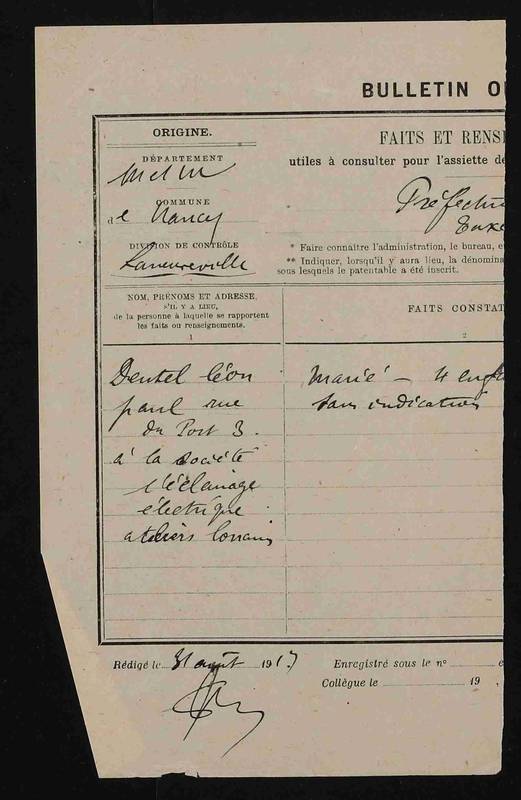 BULLETIN O
ORIGINE.
FAITS ET RENSE
DÉPARTEMENT
utiles à consulter pour l'assiette de
M et M
COMMUNE
de Nancy
Préfecture
Taxe
DIVISION DE CONTRÔLE
Laneuveville
* Faire connaître l'administration, le bureau, e
** Indiquer, lorsqu'il y aura lieu, la dénomina
sous lesquels le patentable a été inscrit.
NOM, PRÉNOMS ET ADRESSE,
S'IL Y A LIEU,
de la personne à laquelle se rapportent
les faits ou renseignements.
1
FAITS CONSTAT
2
Dentel Léon
paul rue
du Port 3.
à la société
d'éclairage
électrique
ateliers lorrains
Marié - 4 enfa
sans indications
Rédigé le 31 août 1917
Enregistré sous le n° e
Collègue le 19 .